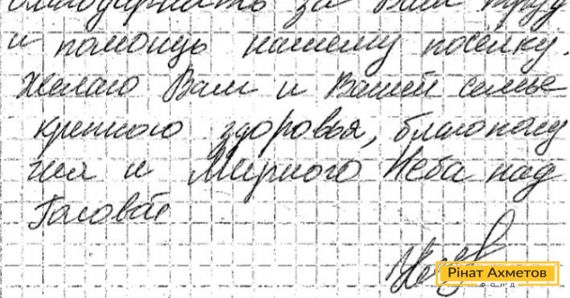 благодарность за Ваш труд
и помощь нашему посёлку.
Желаю Вам и Вашей семье
крепкого здоровья, благополу
чия и Мирного Неба над
Головой
Рінат Ахметов
ФОНД